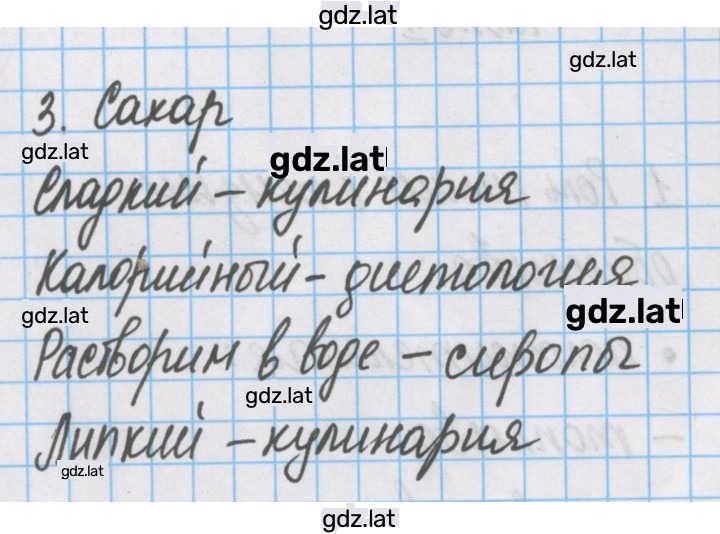 gdz.lat
gdz.lat
3. Сахар
gdz.lat
gdz.lat
Сладкий – кулинария
Калорийный – диетология
gdz.lat
gdz.lat
Растворим в воде – сиропы
gdz.lat
Липкий – кулинария
gdz.lat
gdz.lat